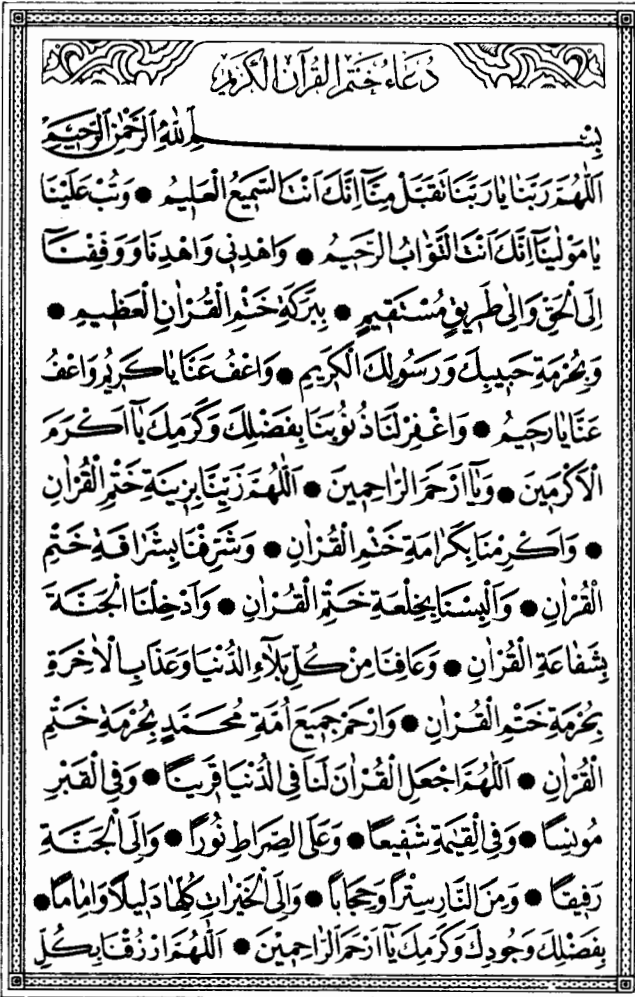 دُعَاءُ خَتْمِ الْقُرْآنِ الْكَرِيمِ
بِسْمِ اللّٰهِ الرَّحْمٰنِ الرَّحِيمِ
اَللّٰهُمَّ رَبَّنَا يَا رَبَّنَا تَقَبَّلْ مِنَّٓا اِنَّكَ اَنْتَ السَّمِيعُ الْعَلِيمُ ● وَتُبْ عَلَيْنَا
يَا مَوْلٰينَٓا اِنَّكَ اَنْتَ التَّوَّابُ الرَّحِيمُ ● وَاهْدِنِي وَاهْدِنَا وَوَفِّقْنَٓا
اِلَى الْحَقِّ وَاِلٰى طَرِيقٍ مُسْتَقِيمٍ ● بِبَرَكَةِ خَتْمِ الْقُرْاٰنِ الْعَظِيمِ ●
وَبِحُرْمَةِ حَبِيبِكَ وَرَسُولِكَ الْكَرِيمِ ● وَاعْفُ عَنَّا يَا كَرِيمُ وَاعْفُ
عَنَّا يَا رَحِيمُ ● وَاغْفِرْ لَنَا ذُنُوبَنَا بِفَضْلِكَ وَكَرَمِكَ يَٓا اَكْرَمَ
الْاَكْرَمِينَ ● وَيَٓا اَرْحَمَ الرَّاحِمِينَ ● اَللّٰهُمَّ زَيِّنَّا بِزِينَةِ خَتْمِ الْقُرْاٰنِ
● وَاَكْرِمْنَا بِكَرَامَةِ خَتْمِ الْقُرْاٰنِ ● وَشَرِّفْنَا بِشَرَافَةِ خَتْمِ
الْقُرْاٰنِ ● وَاَلْبِسْنَا بِخِلْعَةِ خَتْمِ الْقُرْاٰنِ ● وَاَدْخِلْنَا الْجَنَّةَ
بِشَفَاعَةِ الْقُرْاٰنِ ● وَعَافِنَا مِنْ كُلِّ بَلَٓاءِ الدُّنْيَا وَعَذَابِ الْاٰخِرَةِ
بِحُرْمَةِ خَتْمِ الْقُرْاٰنِ ● وَارْحَمْ جَمِيعَ اُمَّةِ مُحَمَّدٍ بِحُرْمَةِ خَتْمِ
الْقُرْاٰنِ ● اَللّٰهُمَّ اجْعَلِ الْقُرْاٰنَ لَنَا فِي الدُّنْيَا قَرِينًا ● وَفِي الْقَبْرِ
مُونِسًا ● وَفِي الْقِيٰمَةِ شَفِيعًا ● وَعَلَى الصِّرَاطِ نُورًا ● وَاِلَى الْجَنَّةِ
رَفِيقًا ● وَمِنَ النَّارِ سِتْرًا وَحِجَابًا ● وَاِلَى الْخَيْرَاتِ كُلِّهَا دَلِيلًا وَاِمَامًا ●
بِفَضْلِكَ وَجُودِكَ وَكَرَمِكَ يَٓا اَرْحَمَ الرَّاحِمِينَ ● اَللّٰهُمَّ ارْزُقْنَا بِكُلِّ